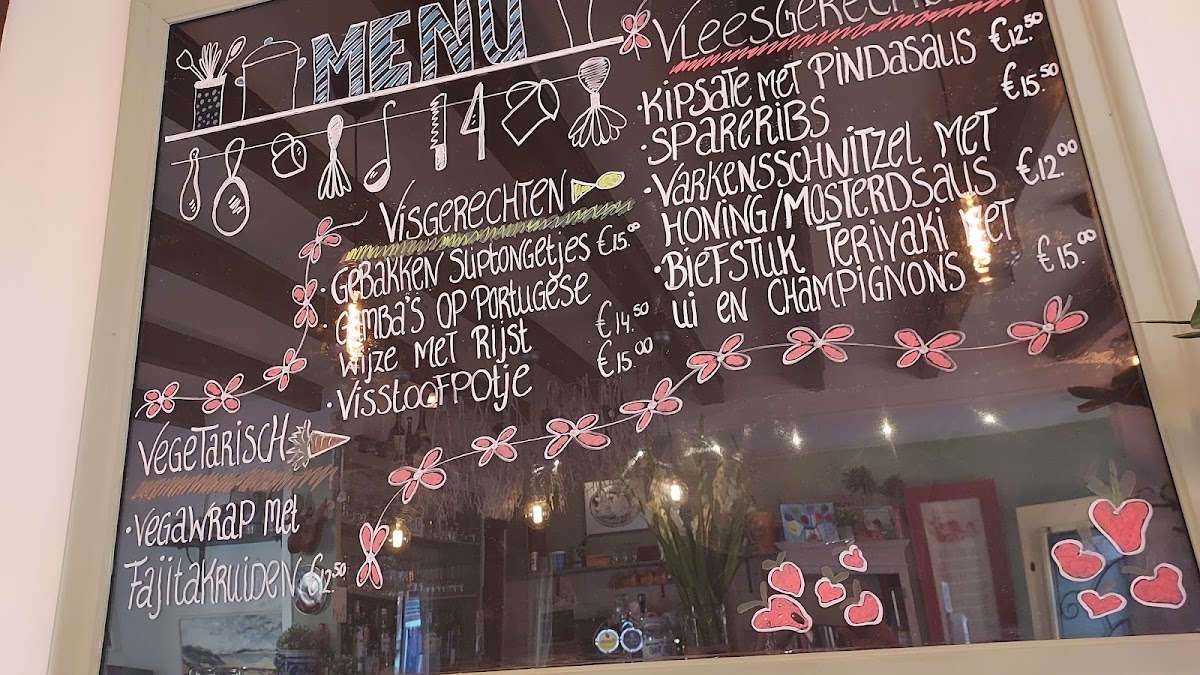 MENU
VISGERECHTEN
·GEBAKKEN SLIPTONGETJES €15.00
·GAMBA'S OP PORTUGESE
WIJZE MET RIJST €14.50
·VISSTOOFPOTJE €15.00
VEGETARISCH
·VEGAWRAP MET
FAJITAKRUIDEN €12.50
VLEESGERECHTEN
·KIPSATE MET PINDASAUS €12.50
·SPARERIBS €15.50
·VARKENSSCHNITZEL MET
HONING/MOSTERDSAUS €12.00
·BIEFSTUK TERIYAKI MET
UI EN CHAMPIGNONS €15.00